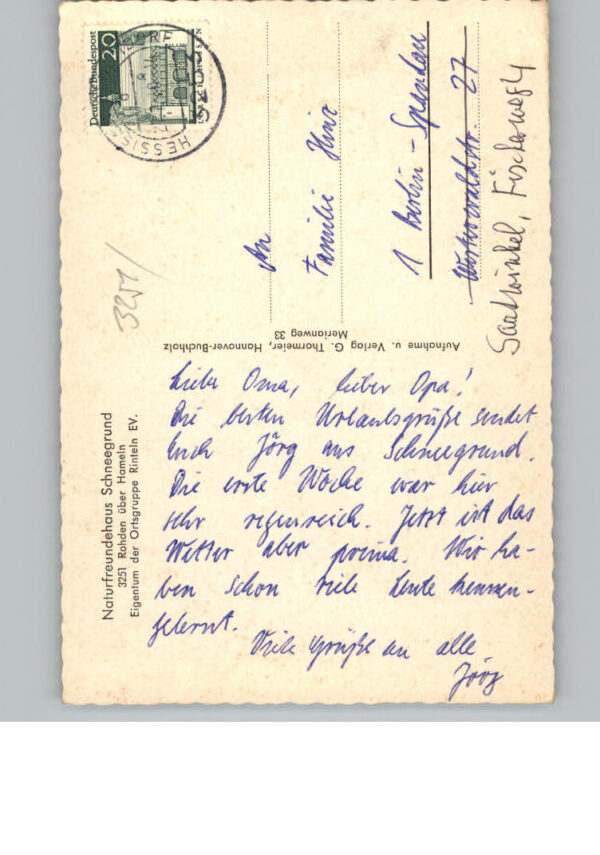 Deutsche Bundespost
20
LORSCH/HESSEN
HESSISCH
3251
An
Familie Hinz
1 Berlin-Spandau
Westerwaldstr. 27
Saatwinkel, Fischerweg 4
Aufnahme u. Verlag G. Thormeier, Hannover-Buchholz
Merianweg 33
Naturfreundehaus Schneegrund
3251 Rohden über Hameln
Eigentum der Ortsgruppe Rinteln EV.
Liebe Oma, lieber Opa!
Die besten Urlaubsgrüße sendet
Euch Jörg aus Schneegrund.
Die erste Woche war hier
sehr regenreich. Jetzt ist das
Wetter aber prima. Wir ha-
ben schon viele Leute kennen-
gelernt.
Viele Grüße an alle
Jörg